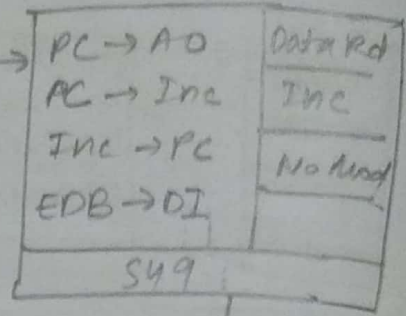 PC → AO
AC → Inc
Inc → PC
EDB → DI
Data Rd
Inc
No Mod
S49